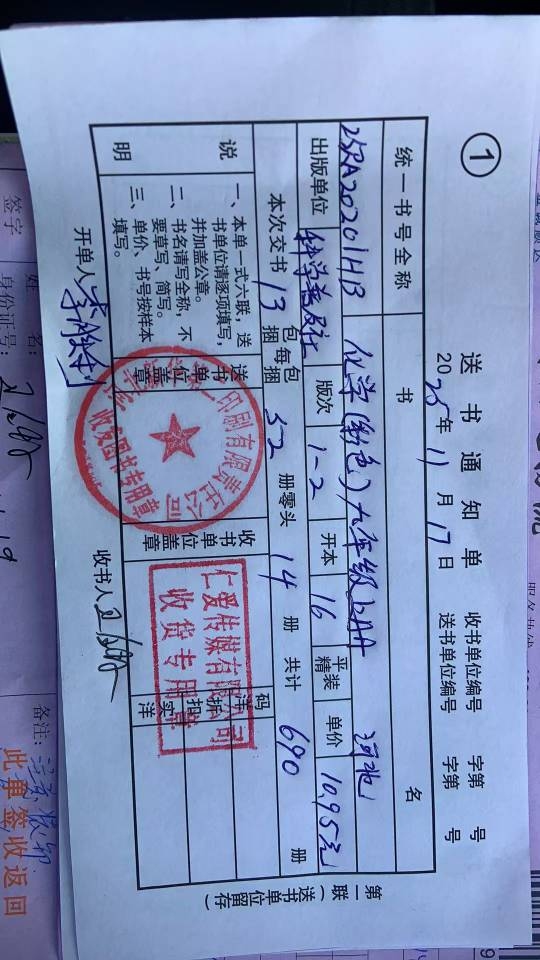 ①
送书通知单
2025年11月17日
收书单位编号 字第 号
送书单位编号 字第 号
统一书号全称 书 名
25RA20201HB 化学(彩色)九年级上AA 河北
出版单位 科学普及社 版次 1-2 开本 16 平装 精 单价 10.95元
本次交书 13 包每包 捆 捆 52 册零头 14 册 共计 690 册
说明
一、本单一式六联，送书单位请逐项填写，并加盖公章。
二、书名请写全称，不要草写、简写。
三、单价、书号按样本填写。
送书单位盖章
印刷有限责任公司
收发图书专用章
收书单位盖章
仁爱传媒有限公司
收货专用章
码洋
折扣
实洋
开单人
收书人
第一联（送书单位留存）
签字
姓名：
身份证号：
19
备注：
此单签收返回